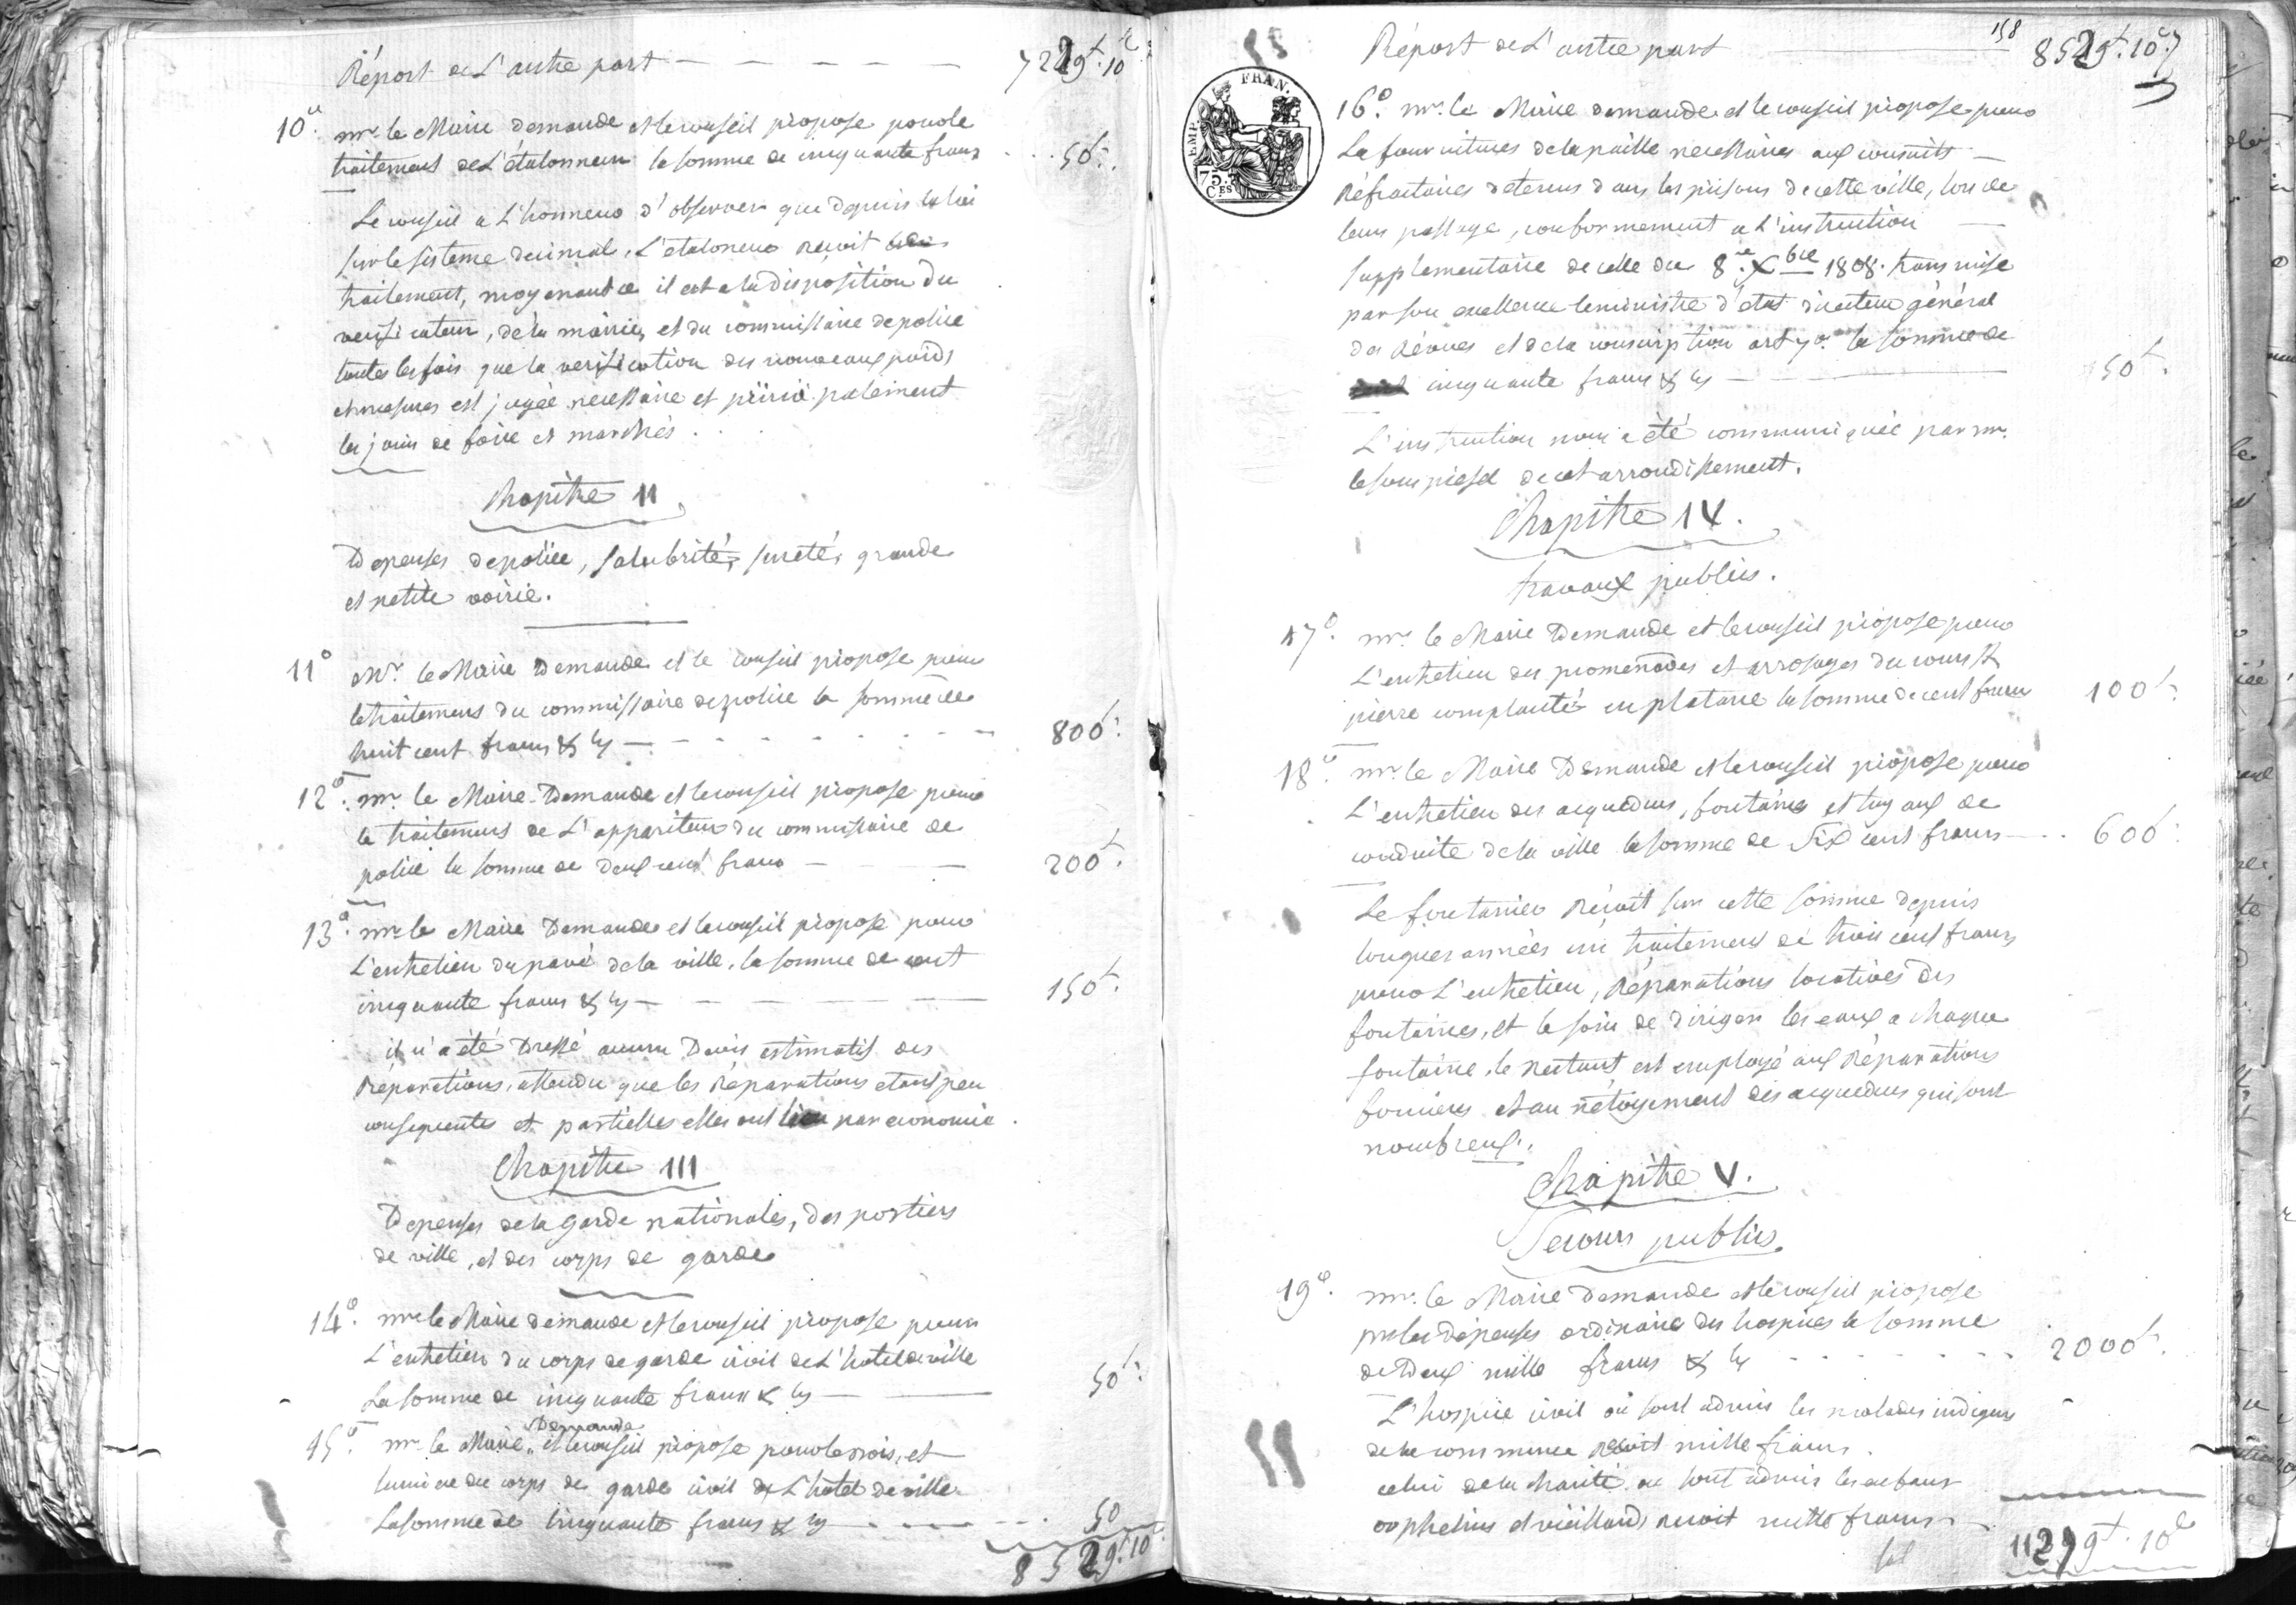 Réport de L'autre part — 7229f. 10c.
10e. mr. le Maire demande et le conseil propose pour le
traitement de L'étalonneur la somme de cinquante francs . . . 50f.
Le conseil a L'honneur d'observer que depuis la loi
sur le sisteme decimal, L'etaloneur reçoit
traitement, moyenant ce il est a la disposition du
verificateur, de la mairie, et du commissaire de police
toutes les fois que la verification des nouveaux poids
et mesures est jugée necessaire et principalement
les jours de foire et marchés.
Chapitre II
Depenses de police, salubrité, sureté, grande
et petite voirie.
11o Mr. le Maire demande et le conseil propose pour
le traitement du commissaire de police la somme de
huit cent francs — 800f.
12o. mr. le Maire Demande et le conseil propose pour
le traitement de L'appariteur du commissaire de
police la somme de deux cent francs — 200f.
13o. mr. le Maire Demande et le conseil propose pour
L'entretien du pavé de la ville, la somme de cent
cinquante francs — 150f.
il n'a été dressé aucun Devis estimatif des
réparations, attendu que les réparations etant peu
consequentes et partielles elles ont lieu par economie.
Chapitre III
Depenses de la garde nationale, des portiers
de ville, et des corps de garde
14o. mr. le Maire demande et le conseil propose pour
L'entretien du corps de garde civil de L'hotel de ville
La somme de cinquante francs — 50f.
Demande
15o. mr. le Maire et le conseil propose pour le bois, et
lumiere du corps de garde civil de L'hotel de ville
La somme de cinquante francs — 50
8529f. 10c.
158
Réport de L'autre part — 8529f. 10c.
FRAN.
EMP.
75.
CES
16o. mr. le Maire demande et le conseil propose pour
La fourniture de la paille necessaires aux conscrits
Réfractaires detenus dans les prisons de cette ville, lors de
leur passage, conformement a L'instruction
supplementaire de celle du 8e. Xbre 1808. transmise
par son excellence le ministre d'etat directeur général
des Révues et de la conscription la somme de
cinquante francs — 50f.
L'instruction nous a été communiquée par mr.
le sous prefet de cet arrondissement.
Chapitre IV.
travaux publics.
17o. mr. le Maire Demande et le conseil propose pour
L'entretien des promenades et arrosages du cours St
pierre complanté en platane la somme de cent francs 100f.
18o. mr. le Maire Demande et le conseil propose pour
L'entretien des acqueducs, fontaines et tuyaux de
conduite de la ville la somme de Six cent francs — 600f.
Le fontanier reçoit sur cette somme depuis
longues années un traitement de trois cent francs
pour L'entretien, réparations locatives des
fontaines, et le soin de diriger les eaux a chaque
fontaine, le restant est employé aux réparations
foncieres et au nétoyement des acqueducs qui sont
nombreux.
Chapitre V.
Secours publics.
19o. mr. le Maire demande et le conseil propose
pr les dépenses ordinaires des hospices la somme
de Deux mille francs — 2000f.
L'hospice civil où sont admis les malades indigens
de la commune reçoit mille francs.
celui de la charité ou sont admis les enfans
orphelins et vieillards reçoit mille francs.
11279f. 10c